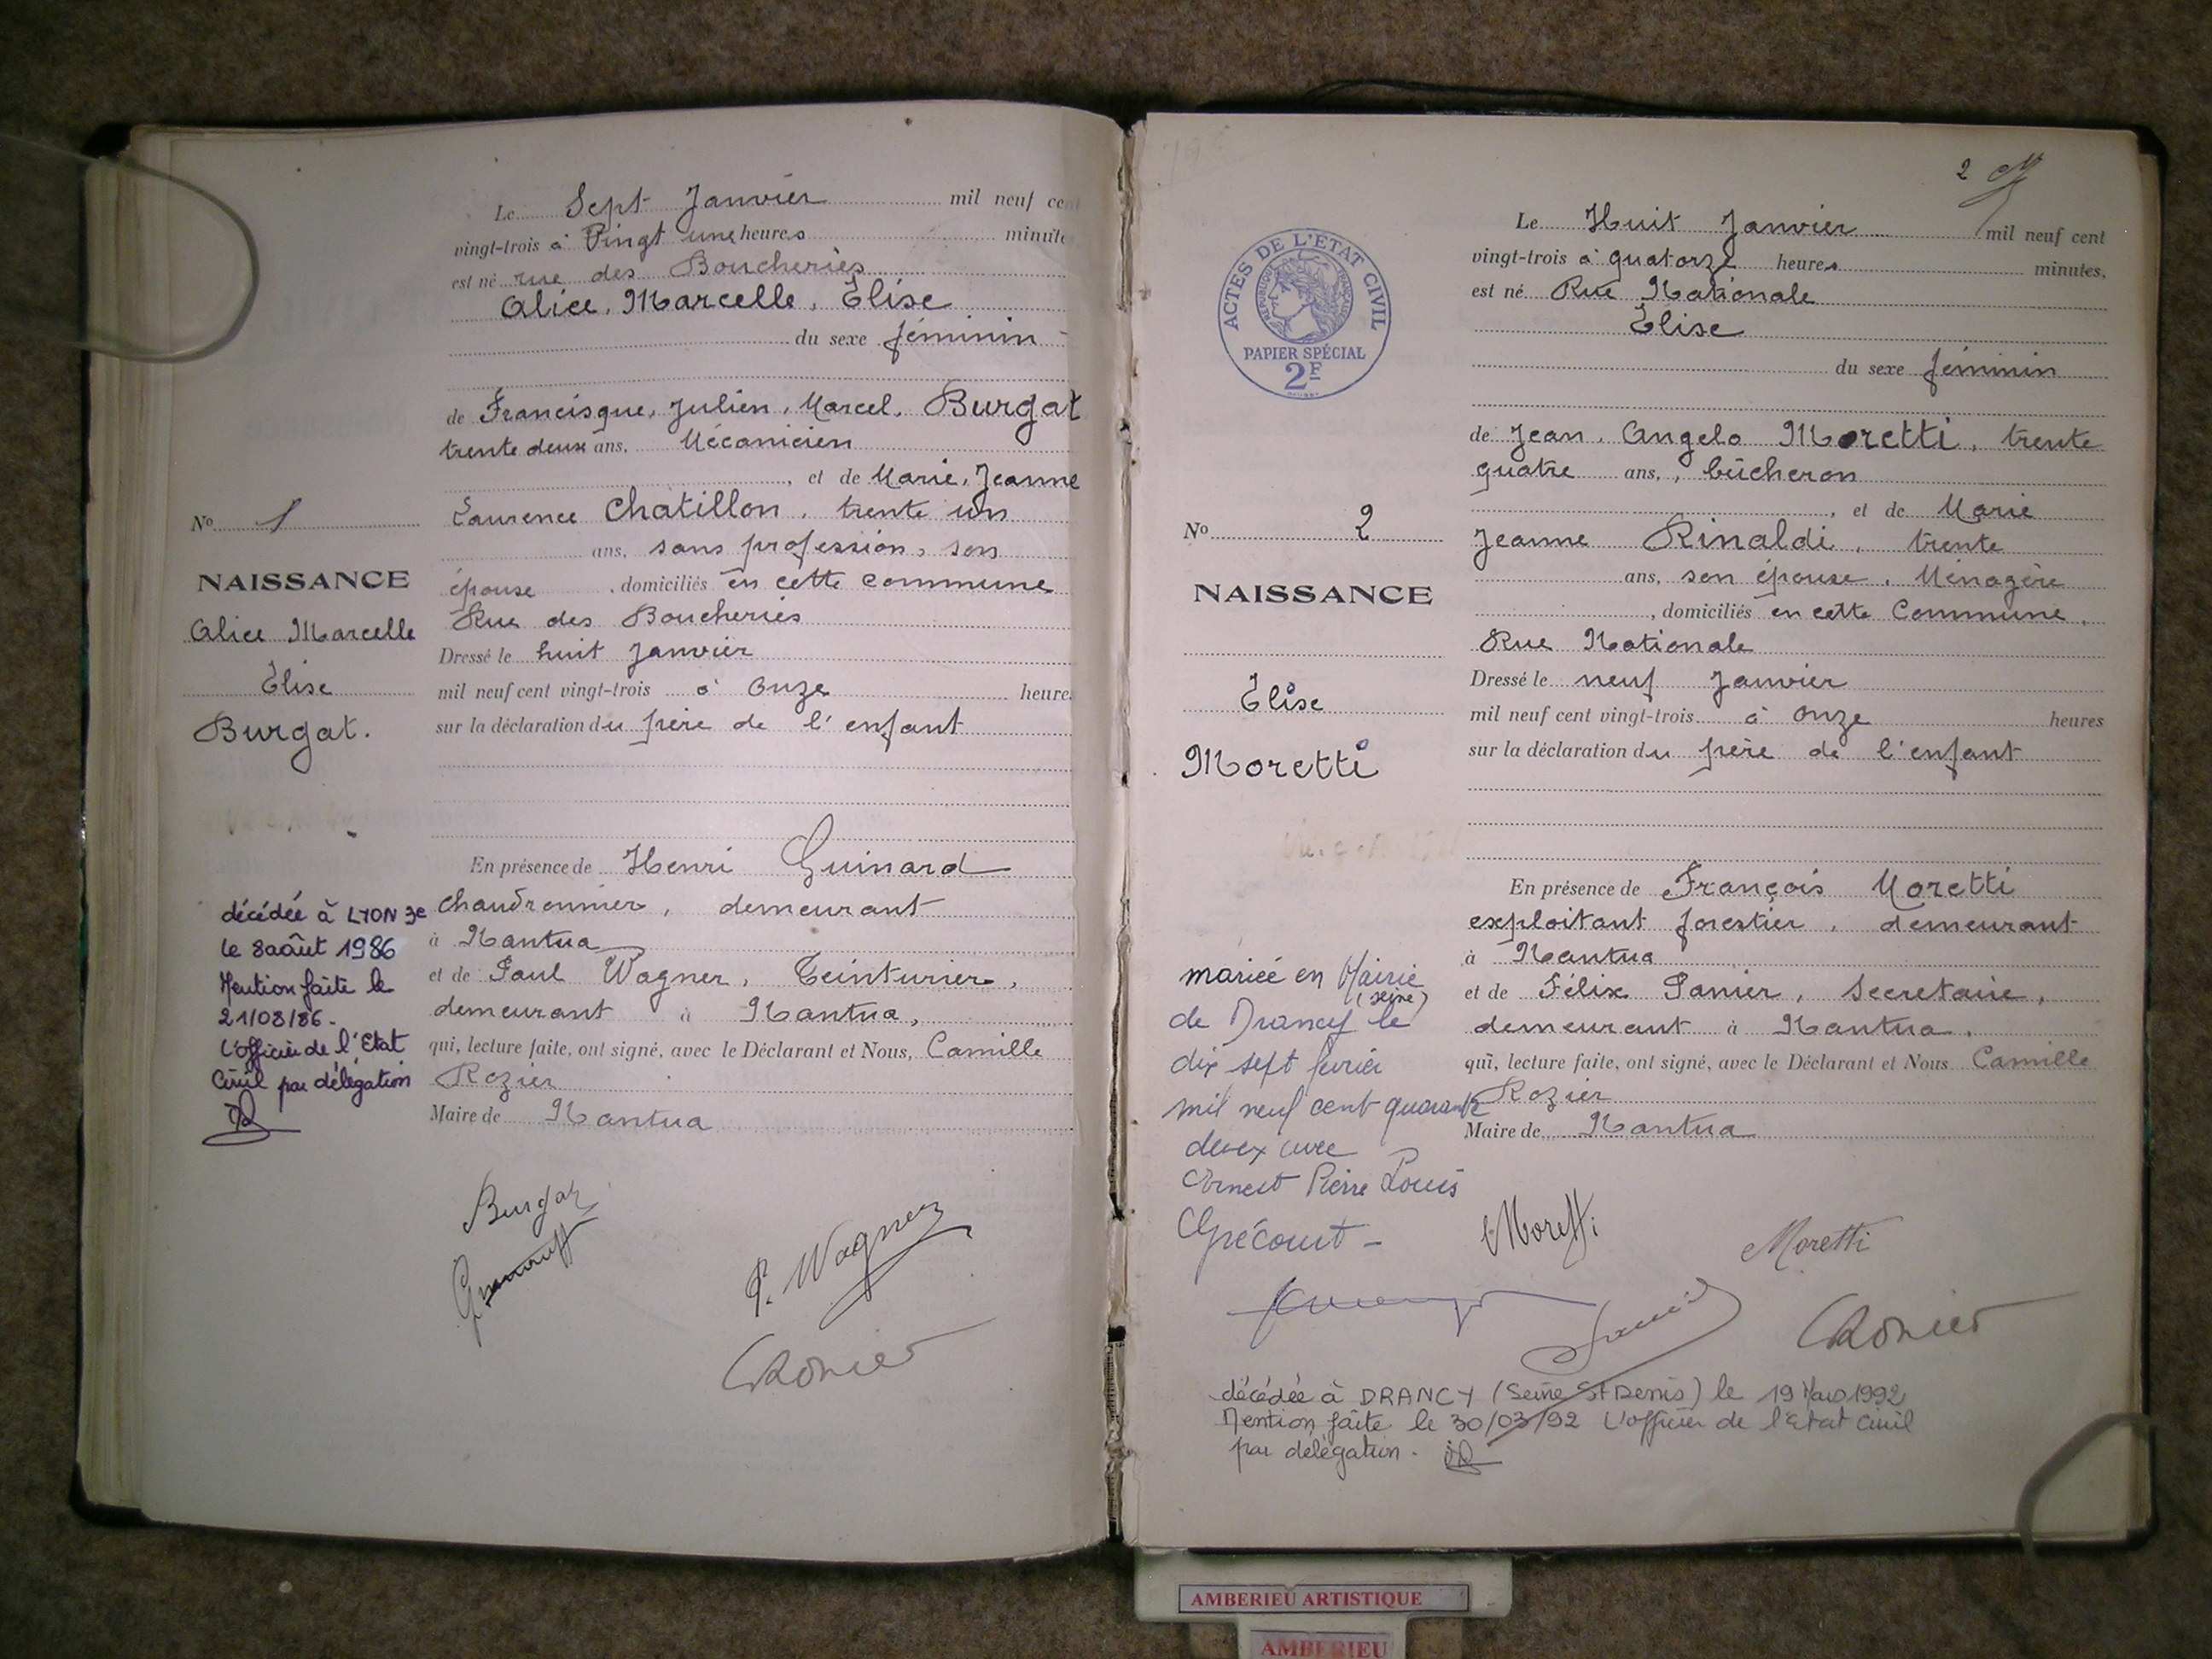 Le Sept Janvier mil neuf cent
vingt-trois à Vingt une heures minutes
est né rue des Boucheries
Alice, Marcelle, Élise
du sexe féminin
de Francisque, Julien, Marcel, Burgat
trente deux ans, Mécanicien
, et de Marie, Jeanne
Laurence Chatillon, trente un
ans, sans profession, son
épouse, domiciliés en cette commune
Rue des Boucheries
Dressé le huit Janvier
mil neuf cent vingt-trois à Onze heures
sur la déclaration du père de l'enfant
En présence de Henri Guinard
Chaudronnier, demeurant
à Nantua
et de Paul Wagner, Teinturier,
demeurant à Nantua,
qui, lecture faite, ont signé, avec le Déclarant et Nous, Camille
Rozier
Maire de Nantua
No 1
NAISSANCE
Alice Marcelle
Élise
Burgat.
décédée à LYON 3e
le 8 août 1986
Mention faite le
21/08/86.
L'officier de l'Etat
Civil par délégation
Burgat
P. Wagner
2
ACTES DE L'ETAT CIVIL
REPUBLIQUE FRANÇAISE
PAPIER SPÉCIAL
2F
Le Huit Janvier mil neuf cent
vingt-trois à quatorze heures minutes,
est né Rue Nationale
Élise
du sexe féminin
de Jean, Angelo Moretti, trente
quatre ans, bûcheron
, et de Marie
Jeanne Rinaldi, trente
ans, son épouse, Ménagère
, domiciliés en cette Commune,
Rue Nationale
Dressé le neuf Janvier
mil neuf cent vingt-trois à Onze heures
sur la déclaration du père de l'enfant
En présence de François Moretti
exploitant forestier, demeurant
à Nantua
et de Félix Panier, Secrétaire,
demeurant à Nantua.
qui, lecture faite, ont signé, avec le Déclarant et Nous Camille
Rozier
Maire de Nantua
No 2
NAISSANCE
Élise
Moretti
mariée en Mairie
de Drancy (seine) le
dix sept février
mil neuf cent quarante
deux avec
Ernest Pierre Louis
Grécourt -
Moretti
Moretti
CRozier
décédée à DRANCY (Seine St Denis) le 19 Mars 1992
Mention faite le 30/03/92 L'officier de l'Etat Civil
par délégation.
AMBERIEU ARTISTIQUE
AMBERIEU